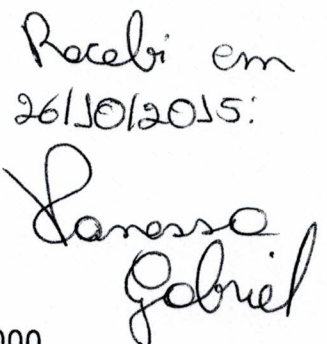 Recebi em
26/10/2015:
Vanessa
Gabriel
000